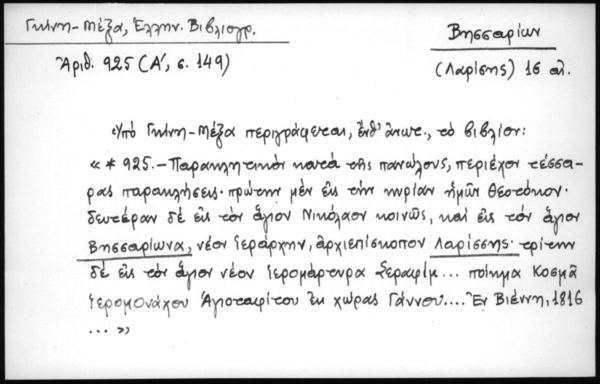 Γκίνη-Μέξα, Ἑλλην. Βιβλιογρ.
Βησσαρίων
Ἀριθ. 925 (Α', σ. 149)
(Λαρίσης) 16 αἰ.
Ὑπό Γκίνη-Μέξα περιγράφεται, ἔνθ' ἀνωτ., τό βιβλίον:
« * 925. – Παρακλητικόν κατά τῆς πανώλους, περιέχον τέσσα-
ρας παρακλήσεις· πρώτην μέν εἰς τήν κυρίαν ἡμῶν Θεοτόκον·
δευτέραν δέ εἰς τόν ἅγιον Νικόλαον κοινῶς, καί εἰς τόν ἅγιον
Βησσαρίωνα, νέον ἱεράρχην, ἀρχιεπίσκοπον Λαρίσσης· τρίτην
δέ εἰς τόν ἅγιον νέον ἱερομάρτυρα Σεραφίμ... ποίημα Κοσμᾶ
ἱερομονάχου Ἁγιοταφίτου ἐκ χώρας Γάννου.... Ἐν Βιέννῃ, 1816
... »